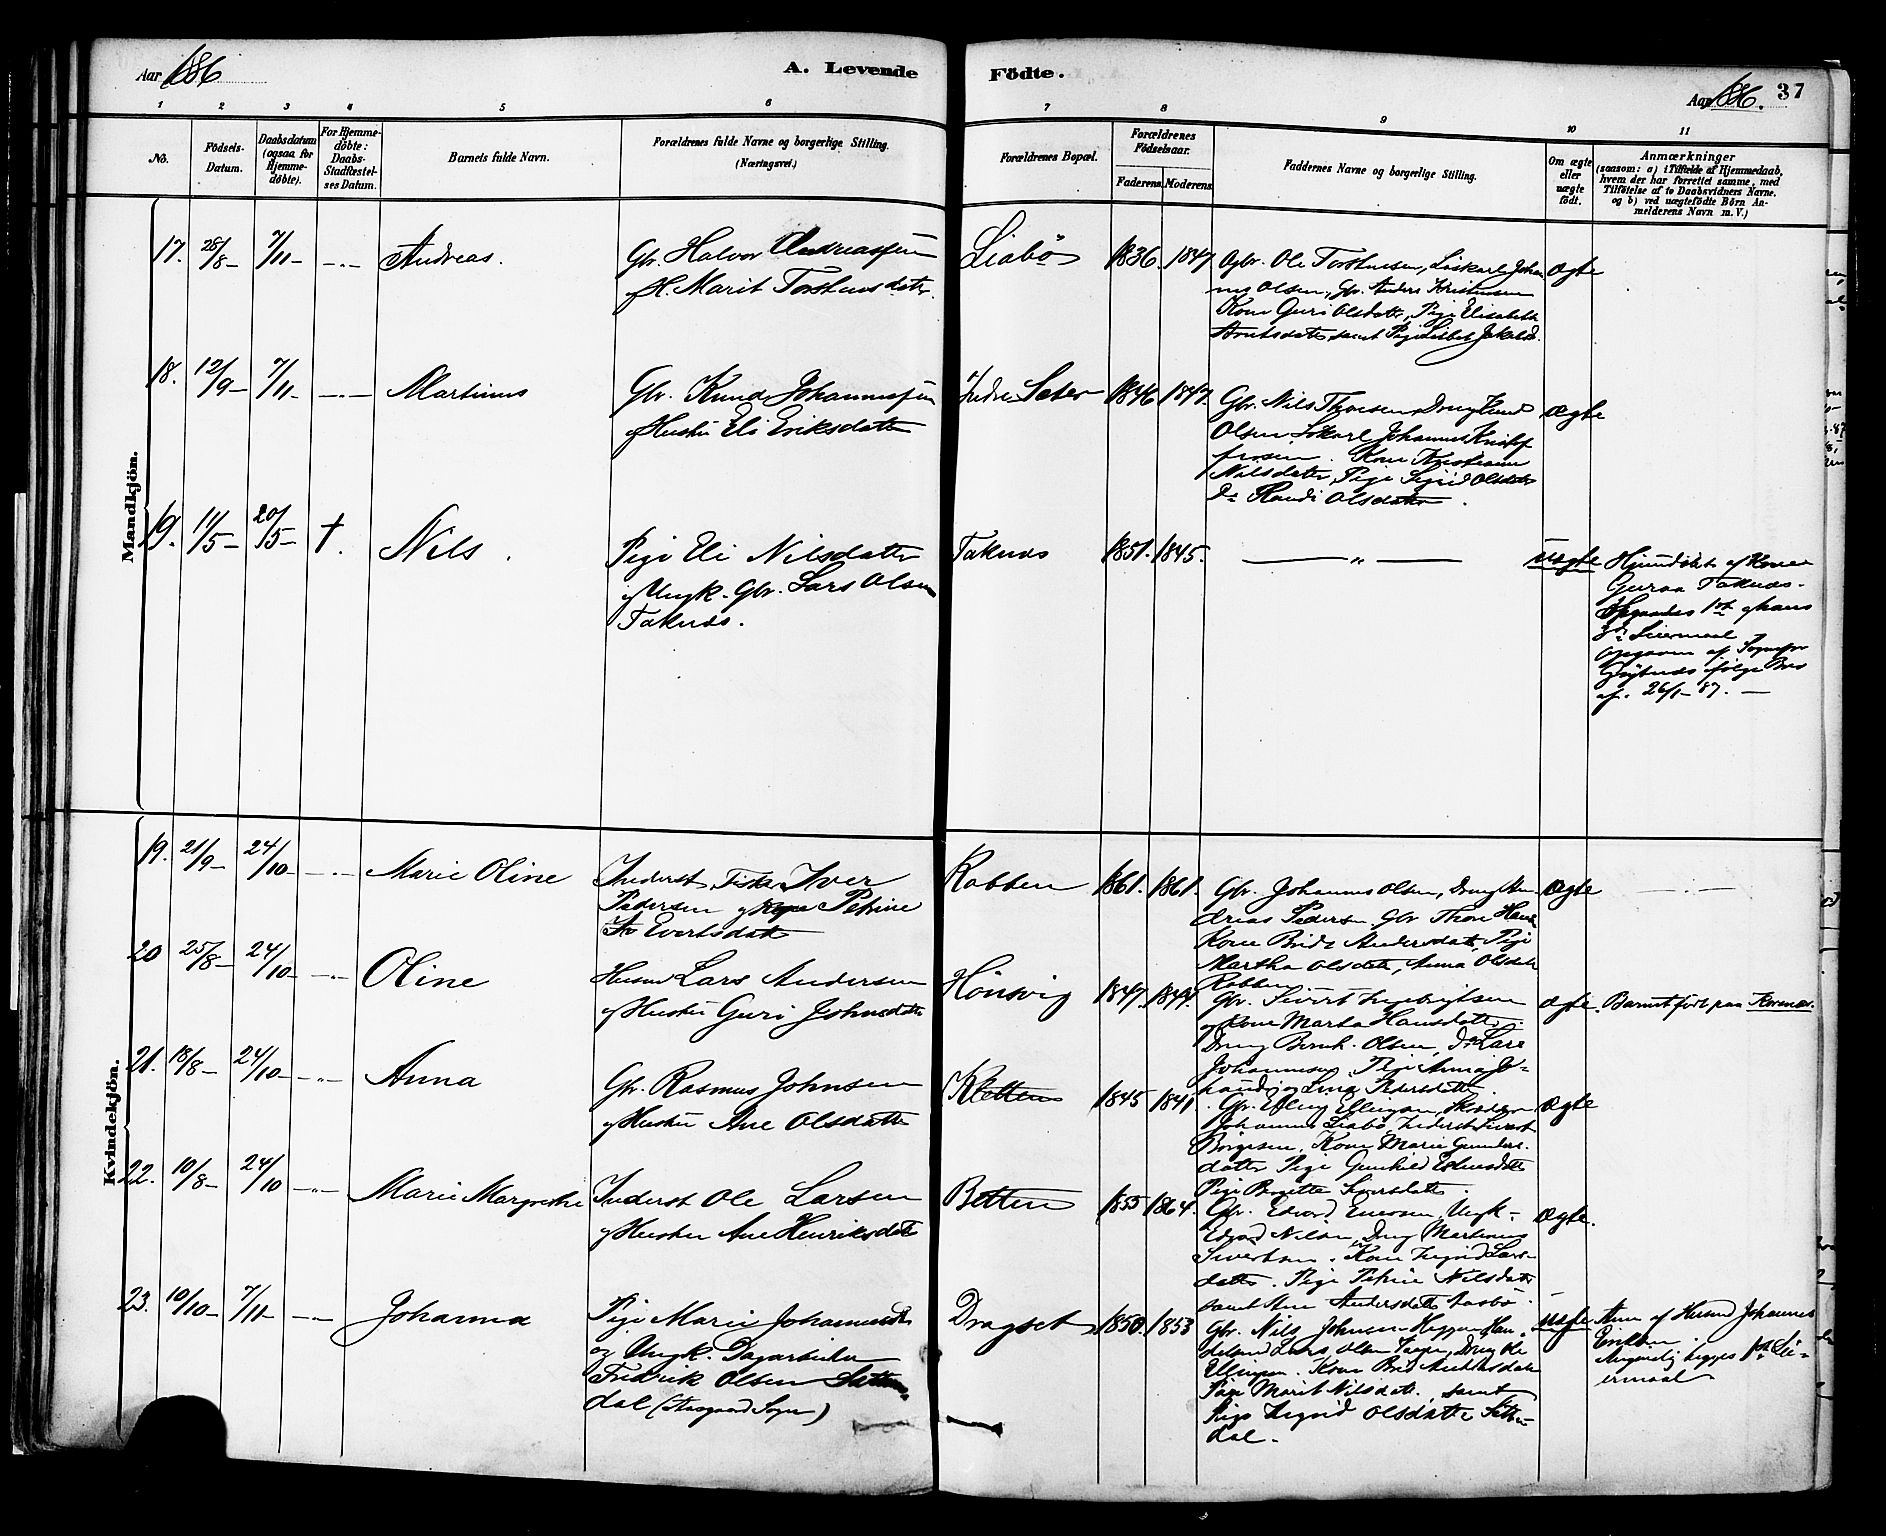 Aar 1886
A. Levende
Födte.
Aar 1886.
37
1 2 3 4 5 6 7 8 9 10 11
No.
Födsels-
Datum.
Daabsdatum
(ogsaa for
Hjemme-
döbte).
For Hjemme-
döbte:
Daabs-
Stadfæstel-
ses Datum.
Barnets fulde Navn.
Forældrenes fulde Navne og borgerlige Stilling.
(Næringsvei.)
Forældrenes Bopæl.
Forældrenes
Födselsaar.
Faderens.
Moderens.
Faddernes Navne og borgerlige Stilling.
Om ægte
eller
uægte
födt.
Anmærkninger
(saasom: a) i Tilfælde af Hjemmedaab,
hvem der har forrettet samme, med
Tilföielse af to Daabsvidners Navne.
og b) ved uægtefödte Börn An-
melderens Navn m. V.)
Mandkjön.
17. 28/8– 7/11– –„– Andreas.
Gbr. Halvor Andreassen
og H. Marit Torstensdatter.
Liabø 1836. 1847
Gbr. Ole Torstensen, Johan
nes Olsen, Gbr. Anders Kristensen
Kone Guri Olsdatter, Pige Elisabeth
Arntsdatter samt Pige Lisbet Jakobsd.
ægte
18. 12/9– 7/11– –„– Martinus
Gbr. Knud Johannessen
og Hustru Eli Eriksdatter
Indre Sæter 1846 1847.
Gbr. Nils Thoresen, Dreng Knud
Olsen, Johannes
Kone
Nilsdatter, Pige Sigrid Olsdatter
Do Randi Olsdatter.
ægte
19. 11/5– 20/5– †. Nils.
Pige Eli Nilsdatter
og Ungk. Gbr. Lars Olsen
Taknes.
Taknes 1851. 1845.
— „ —
uægte
Hjemdøbt af Kone
Guraa Taknes.
Opgaves 1ste hans
Leiermaal
Opgaven af Sognepr
ifølge Brev
af 26/1–87. —
Kvindekjön.
19. 21/9– 24/10– –„– Marie Oline
Inderst, Fisker Iver
Pedersen og Petrine
Evertsdatter
Rabben 1861. 1861.
Gbr. Johannes Olsen, Dreng An
dreas Pedersen, Gbr Thore Hans
Kone Brit Andersdatter, Pige
Martha Olsdatter, Anna Olsdatter
Rabben
ægte –„–
20 25/8– 24/10– –„– Oline
Husmd Lars Andersen
og Hustru Guri Johnsdatter
Hönsvig 1847. 1849.
Gbr. Sivert Ingebrigtsen
og Kone Marta Hansdatter.
Dreng Bernh. Olsen, Do Lars
Johannesen, Pige Anna Jo-
Lina Pedersdatter
ægte. Barnet født paa Kornæs.
21. 18/8– 24/10– –„– Anna
Gbr. Rasmus Johnsen
og Hustru Ane Olsdatter
Kletten 1845 1841
Gbr. Elling Ellingsen,
Johannes Liabø, Inderst Sivert
Børgesen, Kone Marie Gunders-
datter Pige Gunhild Edvardsdatter
Pige Beritte Siversdatter.
ægte
22. 10/8– 24/10 –„– Marie Margrethe
Inderst Ole Larsen
og Hustru Ane Henriksdatter
Betten 1855 1864.
Gbr. Edvard Enersen, Ungk-
Edvard Nilsen, Dreng Martinus
Sivertsen. Kone Ingrid Lars-
datter. Pige Petrine Nilsdatter
samt Ane Andersdatter Aasbø.
ægte.
23. 10/10– 7/11– –„– Johanna
Pige Marie Johannesdtr
og Ungk. Dagarbeider
Fredrik Olsen Setten
dal (Aasgaard Sogn)
Dragset 1850. 1853
Gbr. Nils Johnsen Heggem, Han
delsmd Lars Olsen, Dreng Ole
Ellingsen. Kone Brit Andersdatter
Pige Marit Nilsdatter. samt
Pige Ingrid Olsdatter Setten-
dal.
uægte
Anm af Husmd Johannes
Eriksen.
Angivelig begges 1ste Lei-
ermaal